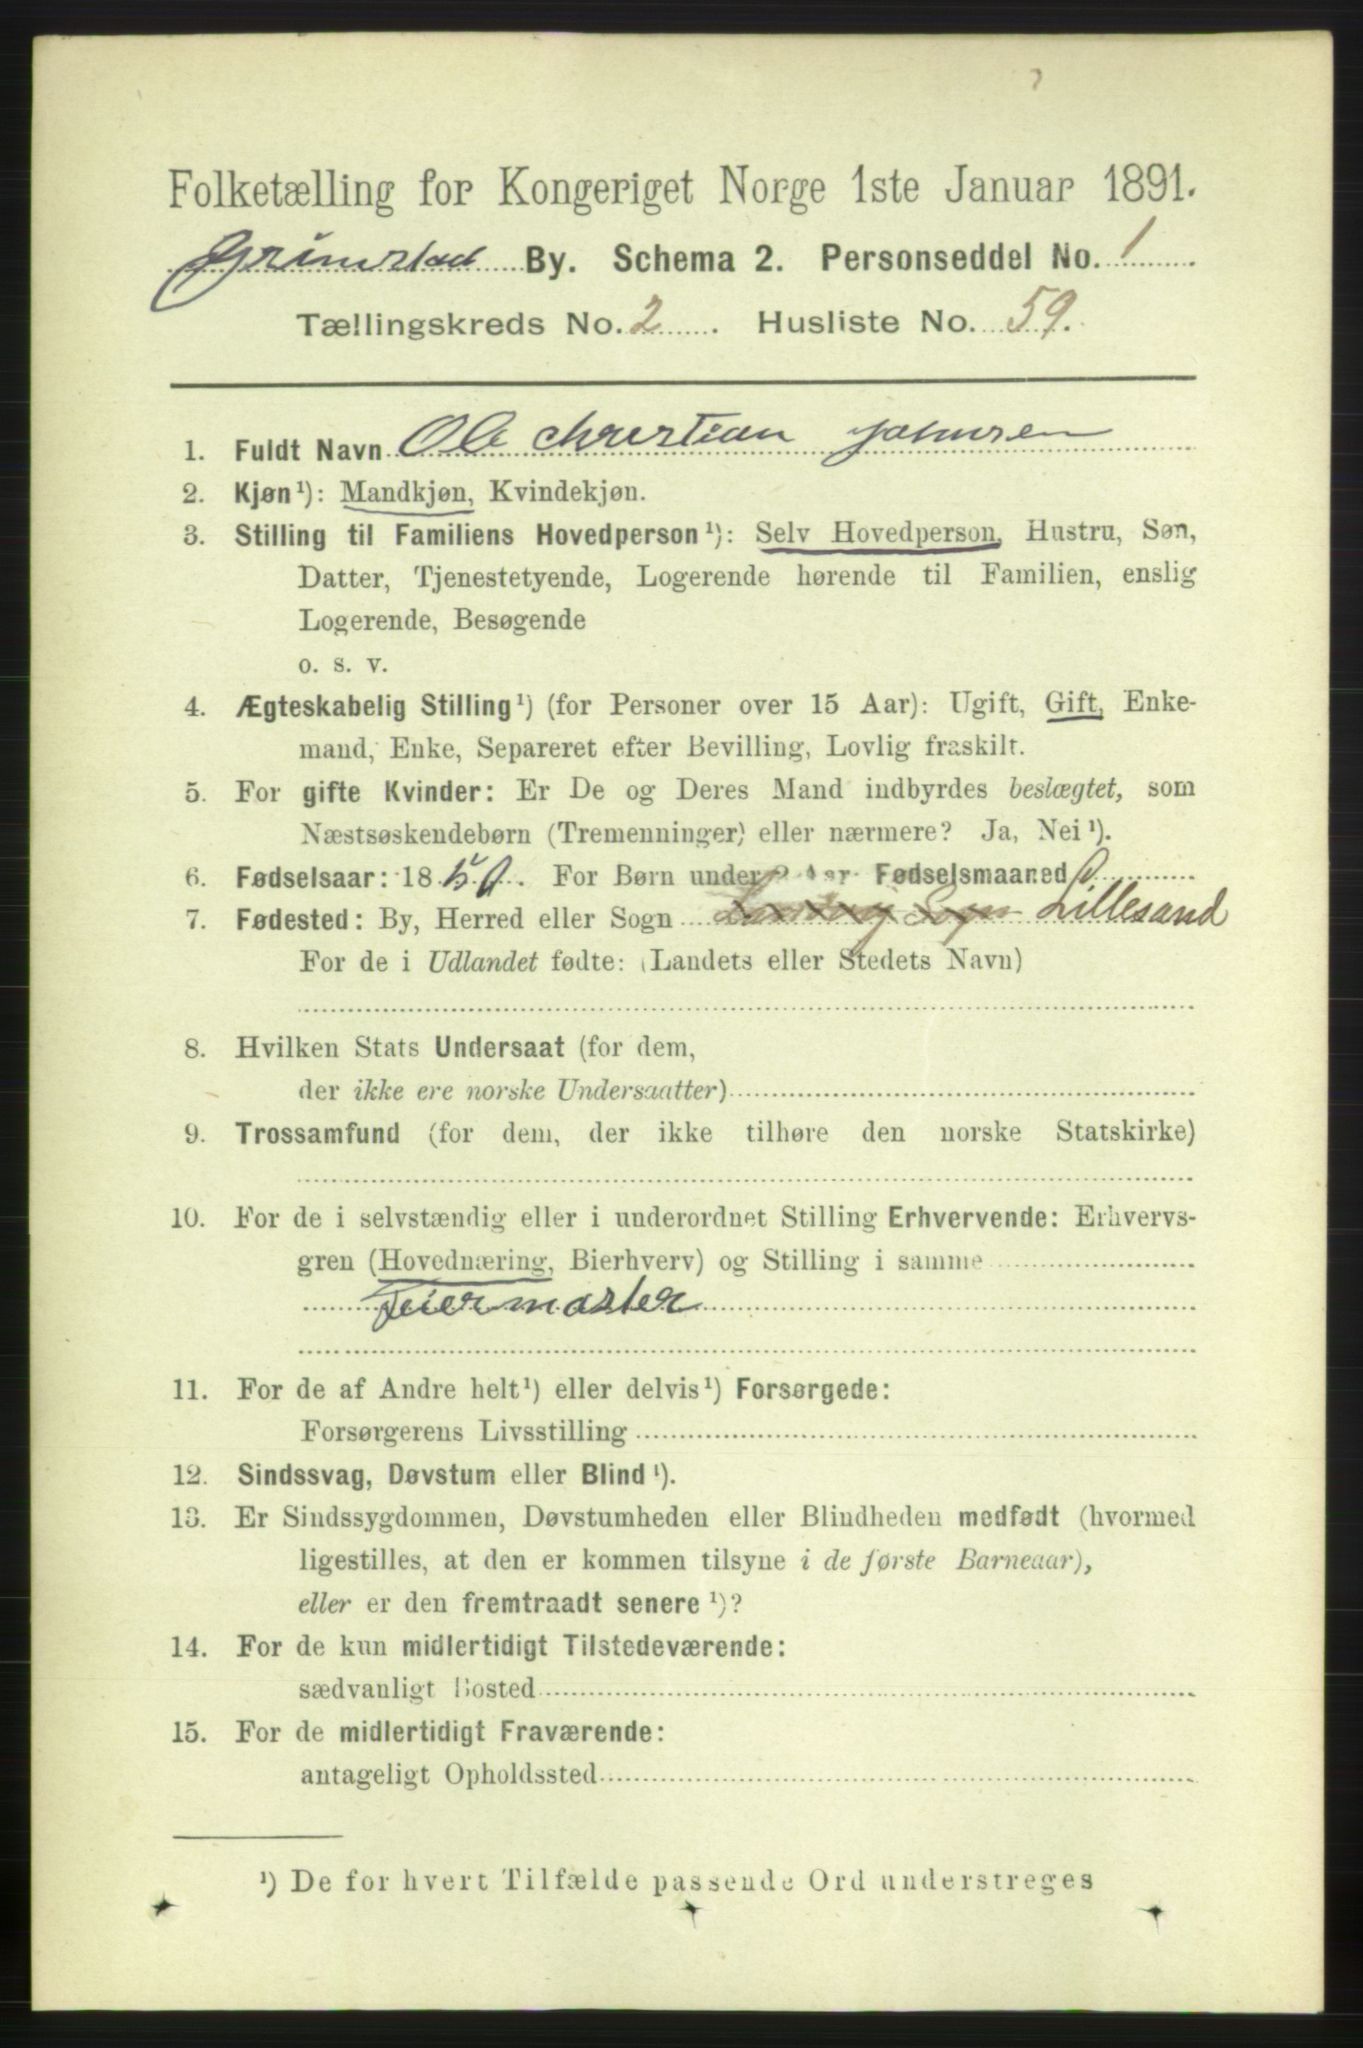 Folketælling for Kongeriget Norge 1ste Januar 1891.
Grimstad By. Schema 2. Personseddel No. 1
Tællingskreds No. 2. Husliste No. 59.
1. Fuldt Navn Ole Christian Johnsen
2. Kjøn¹): Mandkjøn, Kvindekjøn.
3. Stilling til Familiens Hovedperson¹): Selv Hovedperson, Hustru, Søn,
Datter, Tjenestetyende, Logerende hørende til Familien, enslig
Logerende, Besøgende
o. s. v.
4. Ægteskabelig Stilling¹) (for Personer over 15 Aar): Ugift, Gift, Enke-
mand, Enke, Separeret efter Bevilling, Lovlig fraskilt.
5. For gifte Kvinder: Er De og Deres Mand indbyrdes beslægtet, som
Næstsøskendebørn (Tremenninger) eller nærmere? Ja, Nei¹).
6. Fødselsaar: 1850. For Børn under 2 Aar Fødselsmaaned
7. Fødested: By, Herred eller Sogn Sogn Lillesand
For de i Udlandet fødte: (Landets eller Stedets Navn)
8. Hvilken Stats Undersaat (for dem,
der ikke ere norske Undersaatter)
9. Trossamfund (for dem, der ikke tilhøre den norske Statskirke)
10. For de i selvstændig eller i underordnet Stilling Erhvervende: Erhvervs-
gren (Hovednæring, Bierhverv) og Stilling i samme
Feiermaster
11. For de af Andre helt¹) eller delvis¹) Forsørgede:
Forsørgerens Livsstilling
12. Sindssvag, Døvstum eller Blind¹).
13. Er Sindssygdommen, Døvstumheden eller Blindheden medfødt (hvormed
ligestilles, at den er kommen tilsyne i de første Barneaar),
eller er den fremtraadt senere¹)?
14. For de kun midlertidigt Tilstedeværende:
sædvanligt Bosted
15. For de midlertidigt Fraværende:
antageligt Opholdssted
¹) De for hvert Tilfælde passende Ord understreges